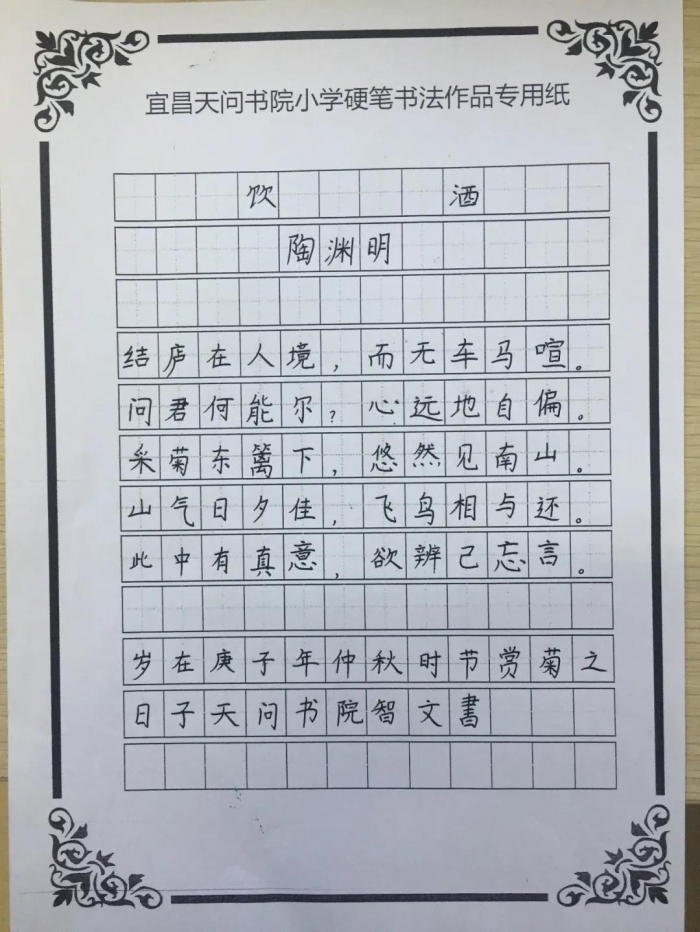 宜昌天问书院小学硬笔书法作品专用纸
饮 酒
陶渊明
结庐在人境，而无车马喧。
问君何能尔？心远地自偏。
采菊东篱下，悠然见南山。
山气日夕佳，飞鸟相与还。
此中有真意，欲辨己忘言。
岁在庚子年仲秋时节赏菊之
日子天问书院智文書